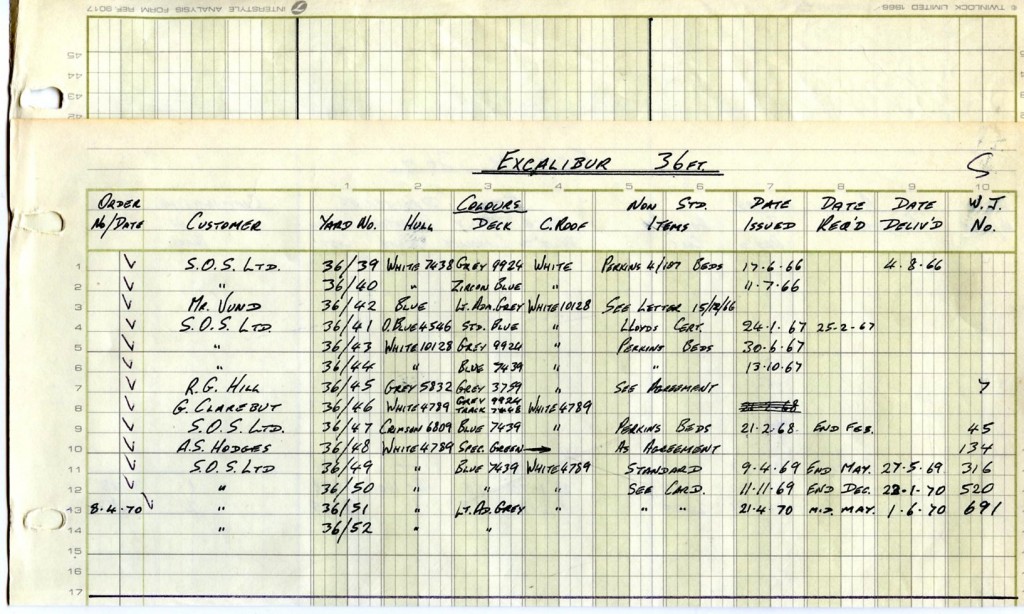 © TWINLOCK LIMITED 1966 INTERSTYLE ANALYSIS FORM REF 9017
45 45
44 44
43 43
42 42
EXCALIBUR 36 FT. S
1 2 3 4 5 6 7 8 9 10
ORDER COLOURS NON STD. DATE DATE DATE W.J.
No/DATE CUSTOMER YARD No. HULL DECK C.ROOF ITEMS ISSUED REQ'D DELIV'D No.
1 ✓ S.O.S. LTD. 36/39 WHITE 7438 GREY 9924 WHITE PERKINS 4/107 BEDS 17-6-66 4-8-66
2 ✓ " 36/40 " ZIRCON BLUE " 11-7-66
3 ✓ MR. VUND 36/42 BLUE LT. ADM. GREY WHITE 10128 SEE LETTER 15/12/66
4 ✓ S.O.S. LTD. 36/41 O.BLUE 4546 STD. BLUE " LLOYDS CERT. 24-1-67 25-2-67
5 ✓ " 36/43 WHITE 10128 GREY 9924 " PERKINS BEDS 30-6-67
6 ✓ " 36/44 " BLUE 7439 " " 13-10-67
7 ✓ R.G. HILL 36/45 GREY 5832 GREY 3759 " SEE AGREEMENT 7
8 ✓ G. CLAREBUT 36/46 WHITE 4789 GREY 9924 TRACK 7448 WHITE 4789
9 ✓ S.O.S. LTD. 36/47 CRIMSON 6809 BLUE 7439 " PERKINS BEDS 21-2-68 END FEB. 45
10 ✓ A.S. HODGES 36/48 WHITE 4789 SPEC. GREEN → AS AGREEMENT 134
11 ✓ S.O.S. LTD 36/49 " BLUE 7439 WHITE 4789 STANDARD 9-4-69 END MAY. 27-5-69 316
12 ✓ " 36/50 " " " SEE CARD. 11-11-69 END DEC. 22-1-70 520
13 8-4-70 ✓ " 36/51 " LT. AD. GREY " " 21-4-70 MID. MAY. 1-6-70 691
14 " 36/52 " "
15
16
17